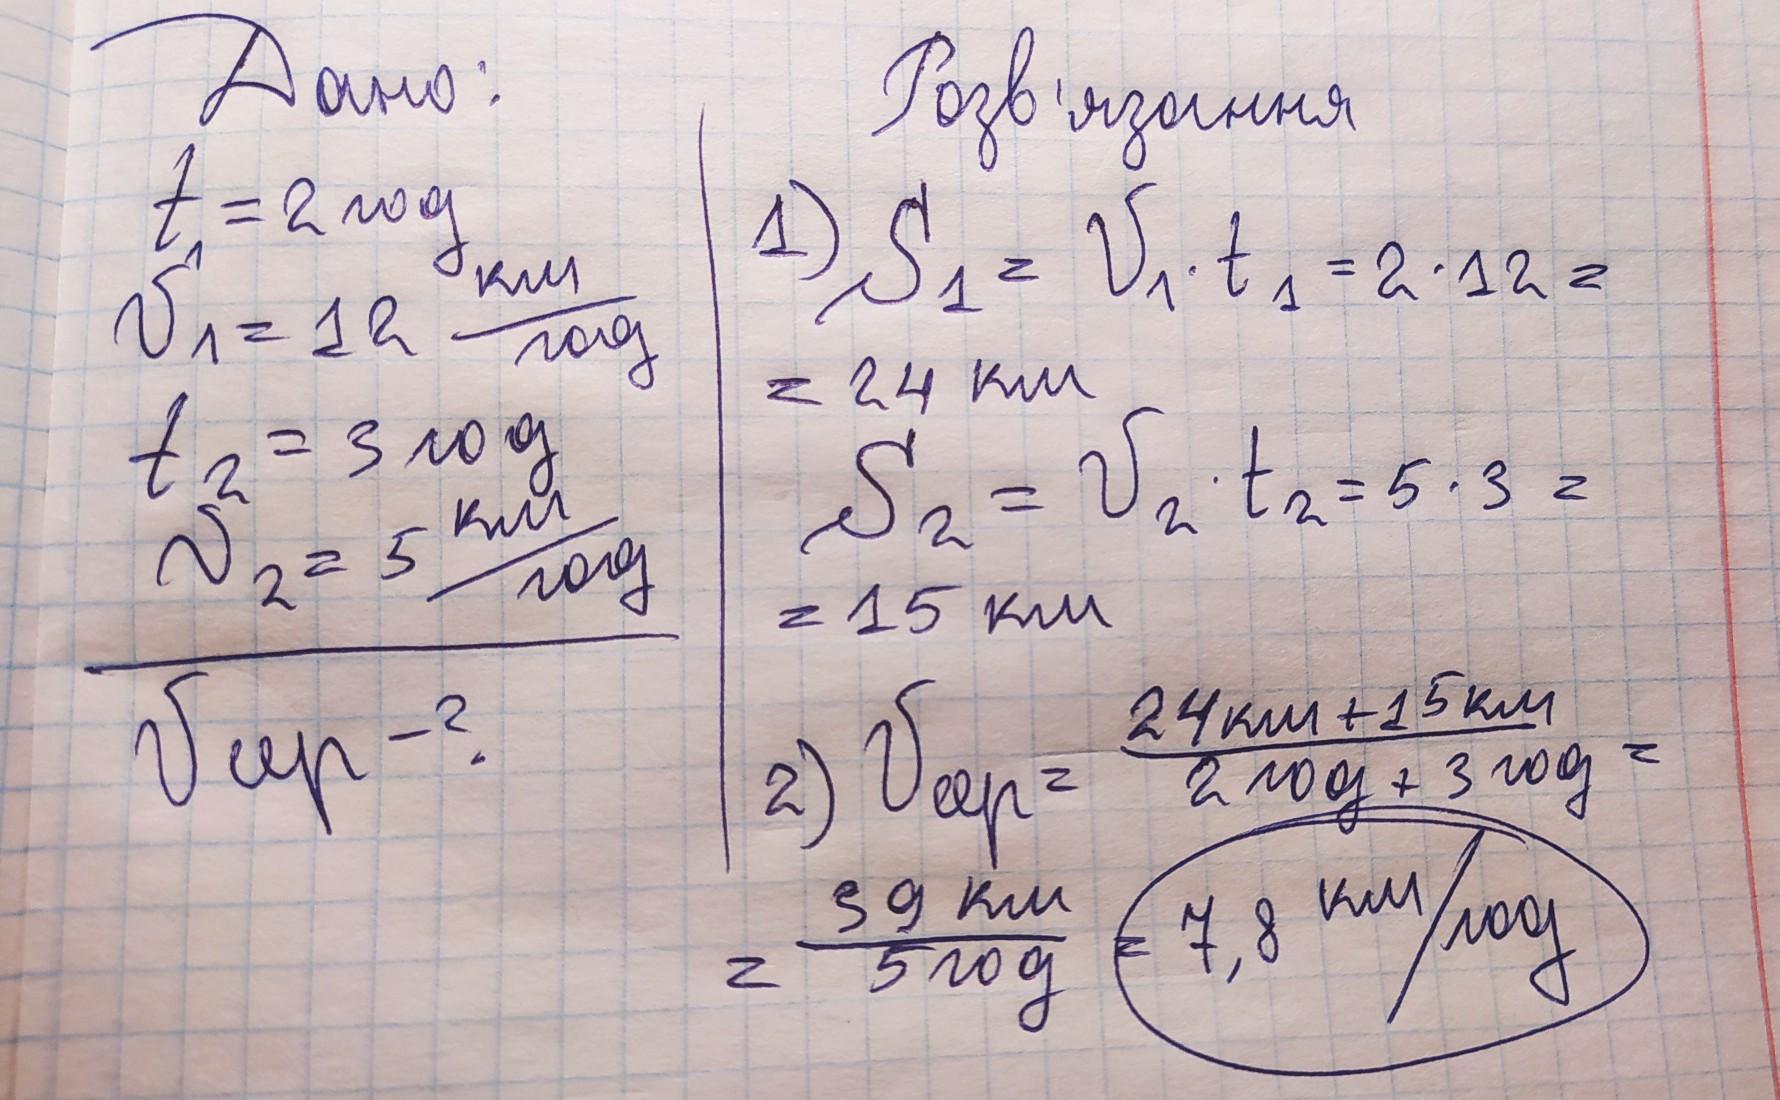 Дано:
t₁ = 2 год
υ₁ = 12 км/год
t₂ = 3 год
υ₂ = 5 км/год
υсер - ?
Розв'язання
1) S₁ = υ₁ · t₁ = 2 · 12 =
= 24 км
S₂ = υ₂ · t₂ = 5 · 3 =
= 15 км
2) υсер = (24 км + 15 км)/(2 год + 3 год) =
= 39 км/5 год = 7,8 км/год